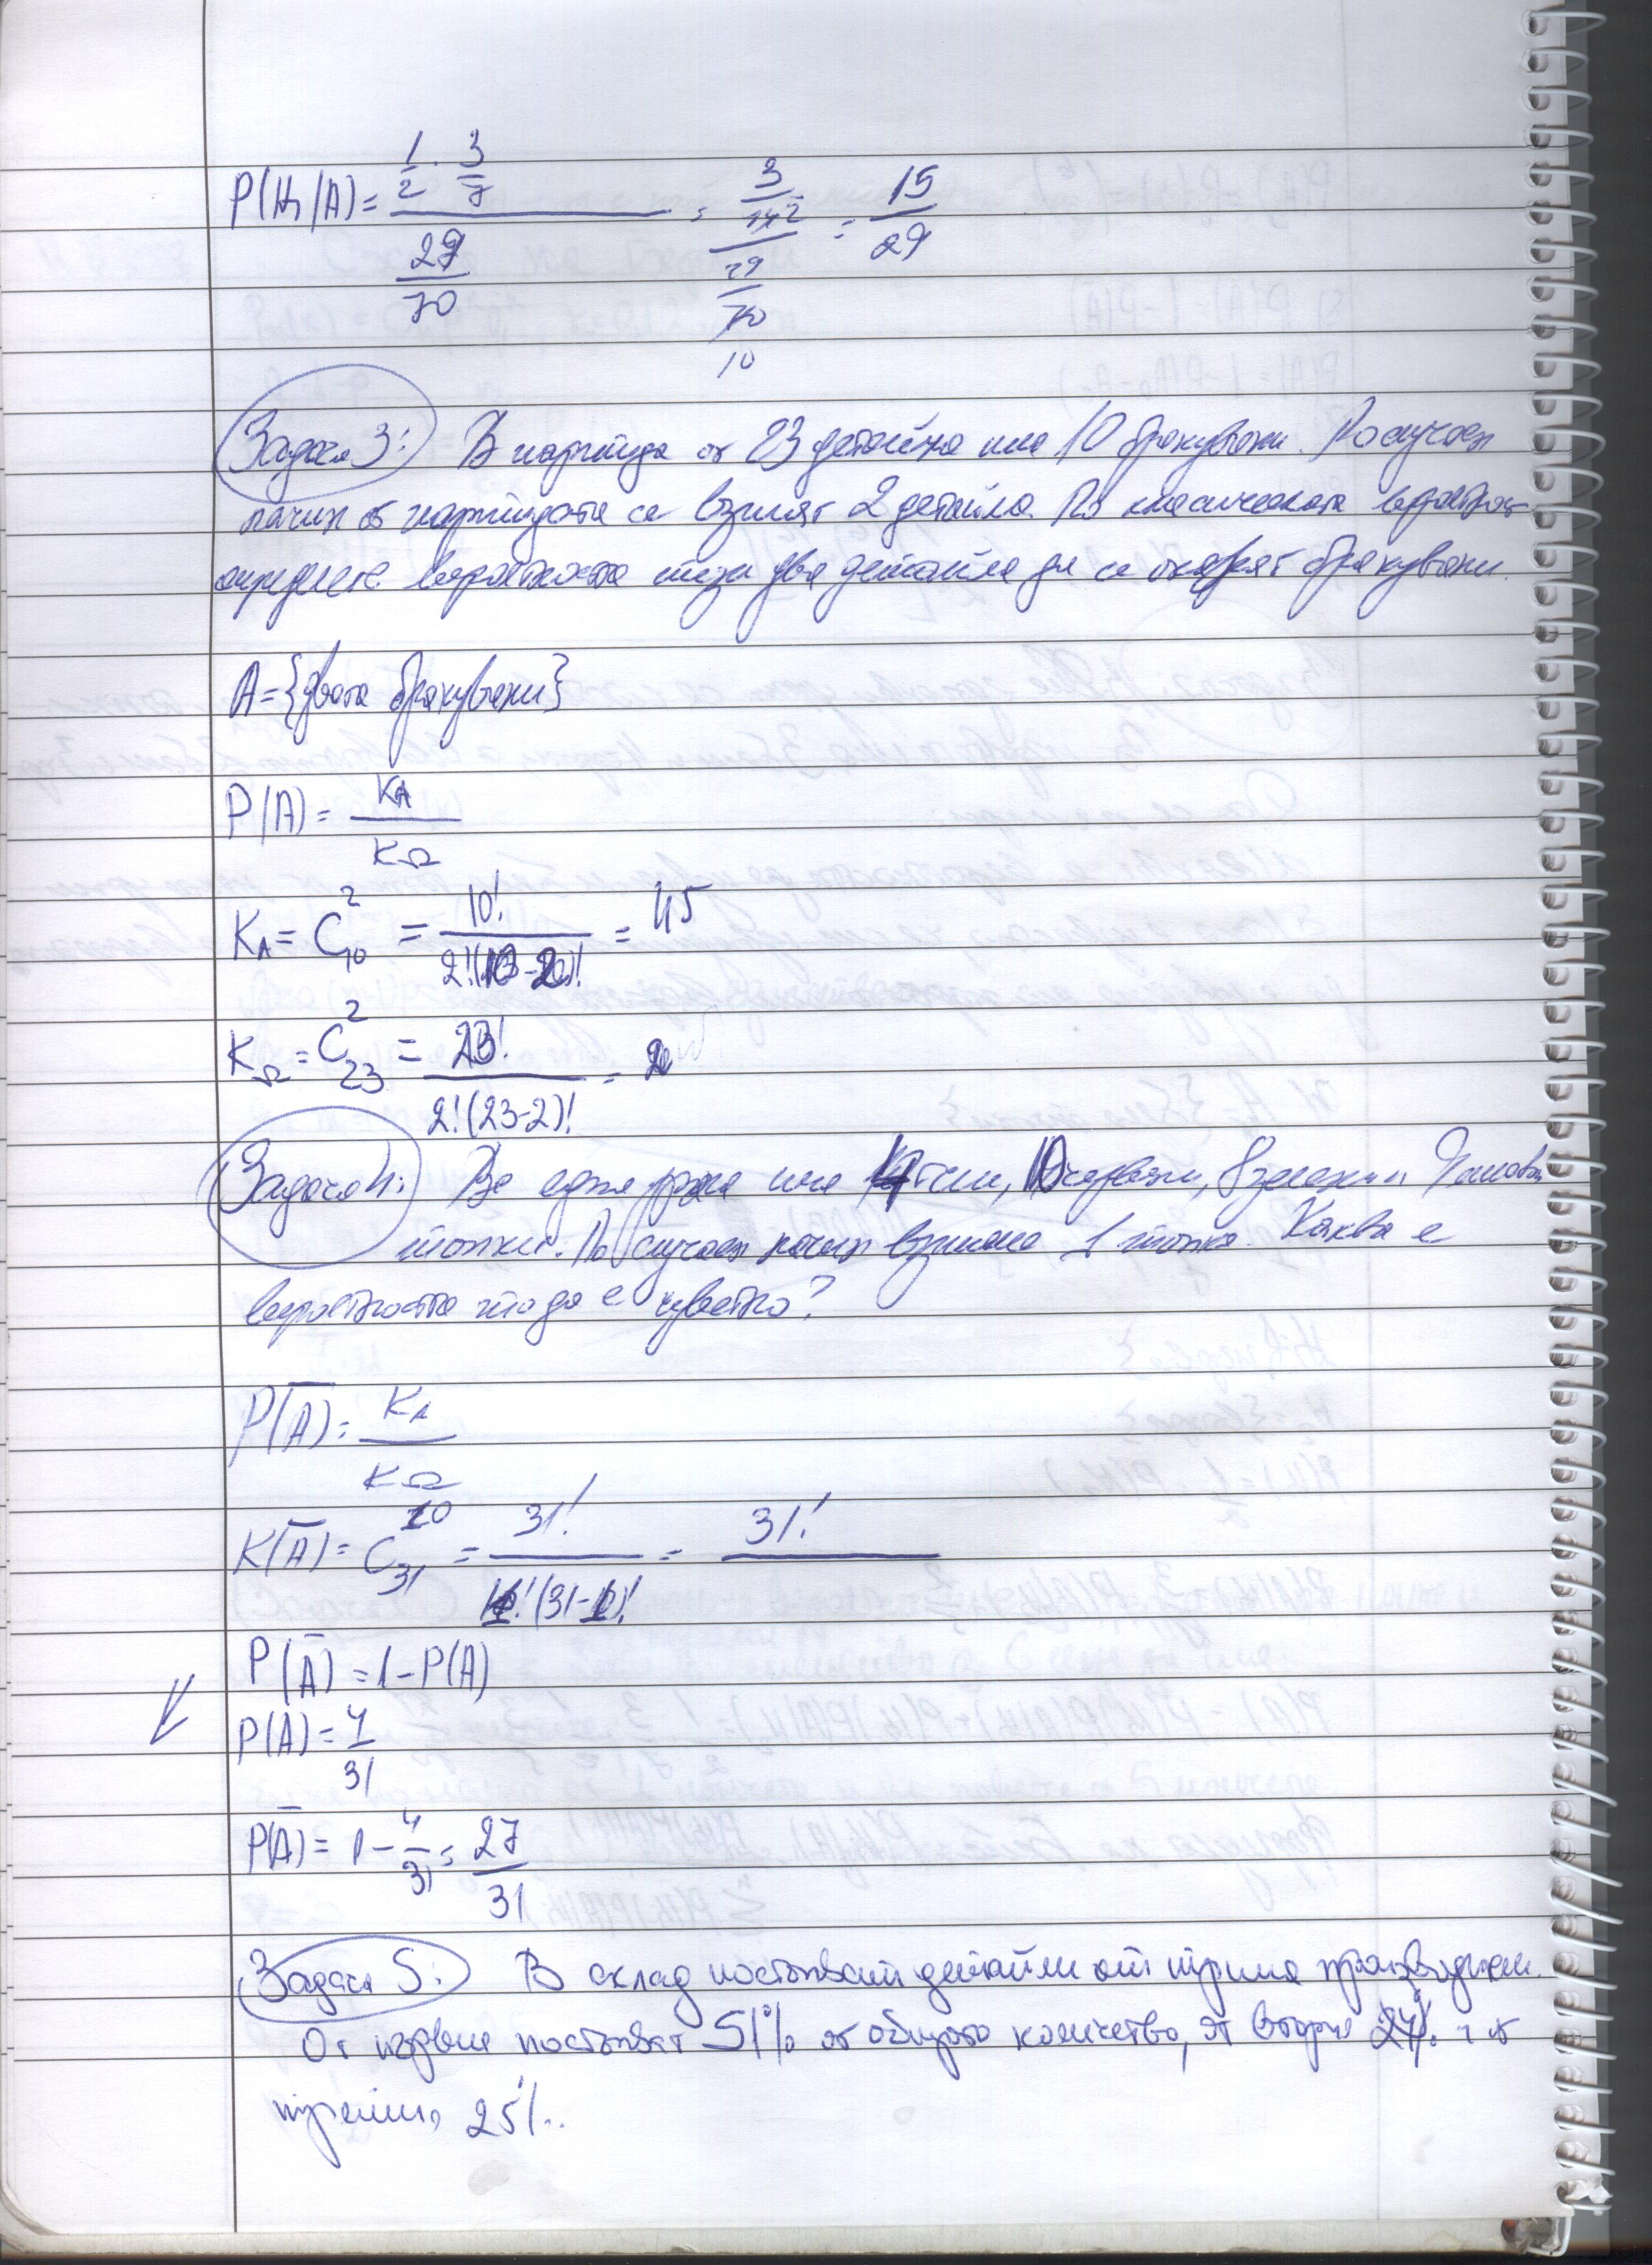 P(H₁/A) = (1/2 · 3/7) / (29/70) = (3/14 2) / (29/70 10) = 15/29
Задача 3: В партида от 23 детайла има 10 бракувани. По случаен
начин от партидата се взимат 2 детайла. По класическата вероятност
определете вероятността тези два детайла да се окажат бракувани.
A = {двата бракувани}
P(A) = K_A / K_Ω
K_A = C₁₀² = 10! / 2!(10-2)! = 45
K_Ω = C₂₃² = 23! / 2!(23-2)! =
Задача 4: Во една има 4 , 10 червени, 8 зелени и 9
топки. По случаен начин взимаме 1 топка. Каква е
вероятността тя да е цветна?
P(Ā) = K_A / K_Ω
K(Ā) = C₃₁¹⁰ = 31! / (31- )! = 31! /
P(Ā) = 1 - P(A)
P(A) = 4/31
P(Ā) = 1 - 4/31 = 27/31
Задача 5: В склад постъпват детайли от трима производители.
От първия постъпват 51% от общото количество, от втория 24% и от
третия 25%.